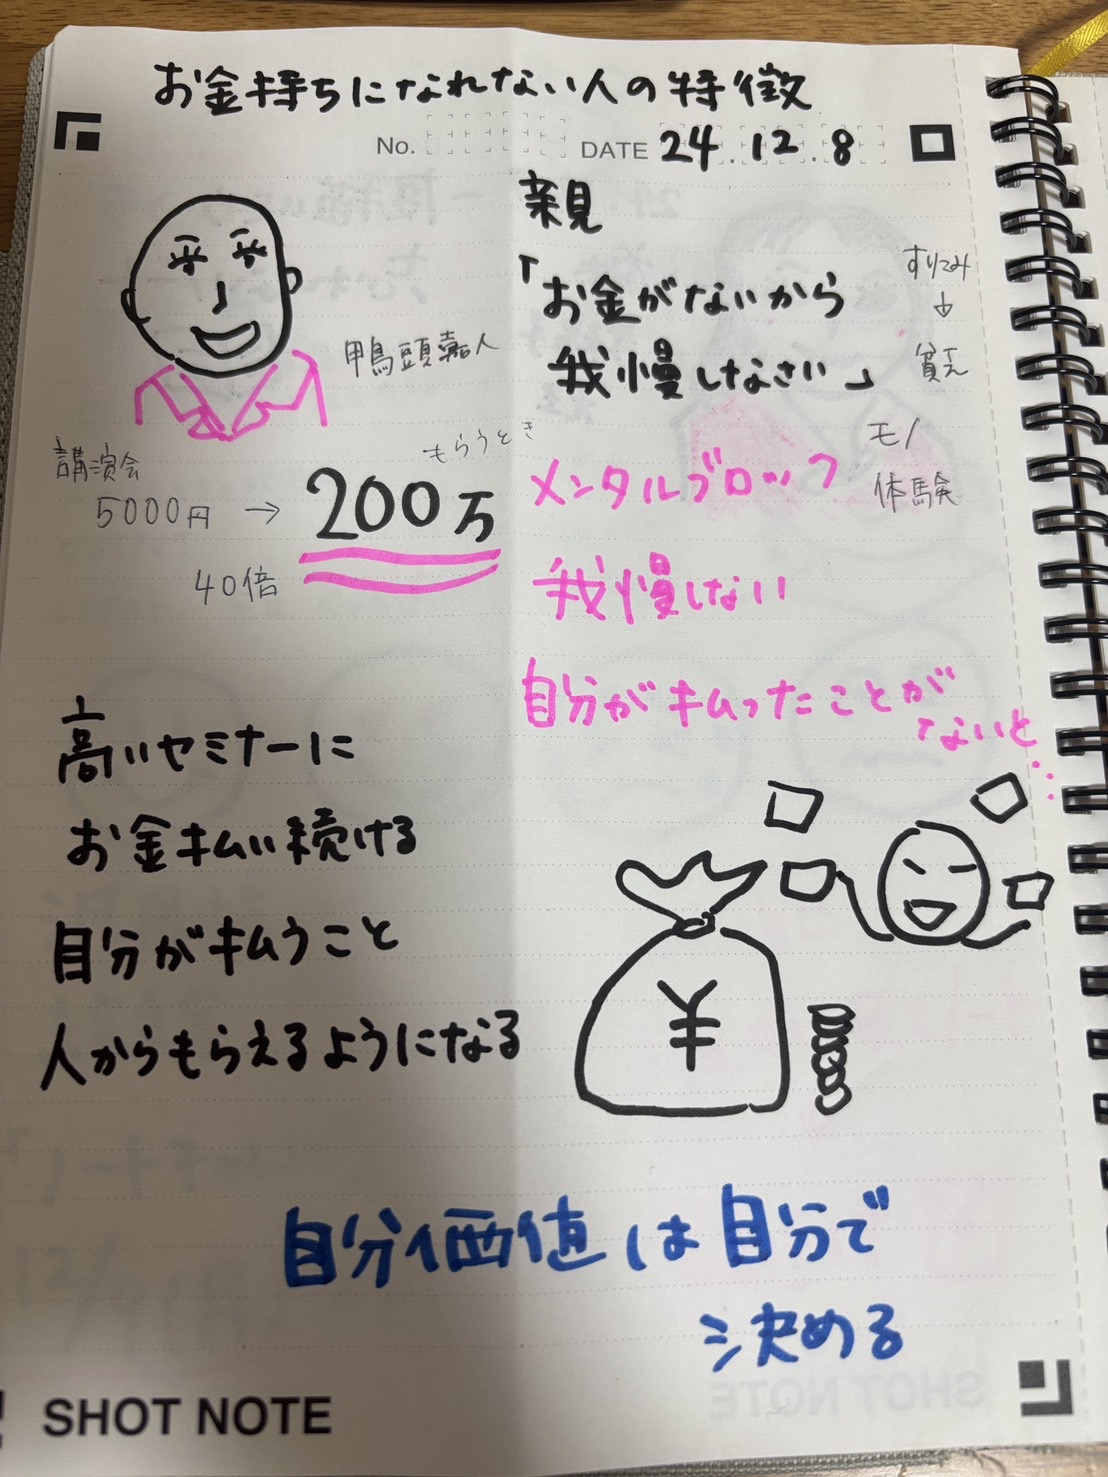 お金持ちになれない人の特徴
No.
DATE 24.12.8
鴨頭嘉人
講演会
5000円 →
もらうとき
200万
40倍
高いセミナーに
お金払い続ける
自分が払うこと
人からもらえるようになる
親
「お金がないから
我慢しなさい」
すりこみ
↓
貧乏
メンタルブロック
モノ
体験
我慢しない
自分が払ったことが
ないと…
¥
自分価値は自分で
決める
SHOT NOTE